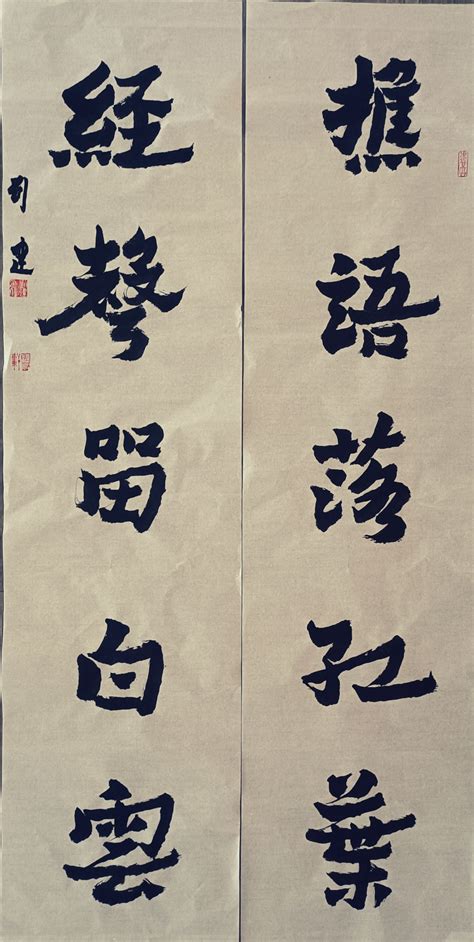 樵語落紅葉
經聲留白雲
刘建